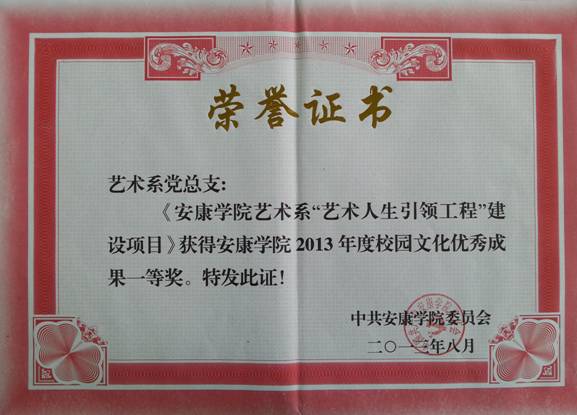 荣誉证书
艺术系党总支:
《安康学院艺术系“艺术人生引领工程”建
设项目》获得安康学院 2013 年度校园文化优秀成
果一等奖。特发此证!
中共安康学院委员会
二〇一三年八月